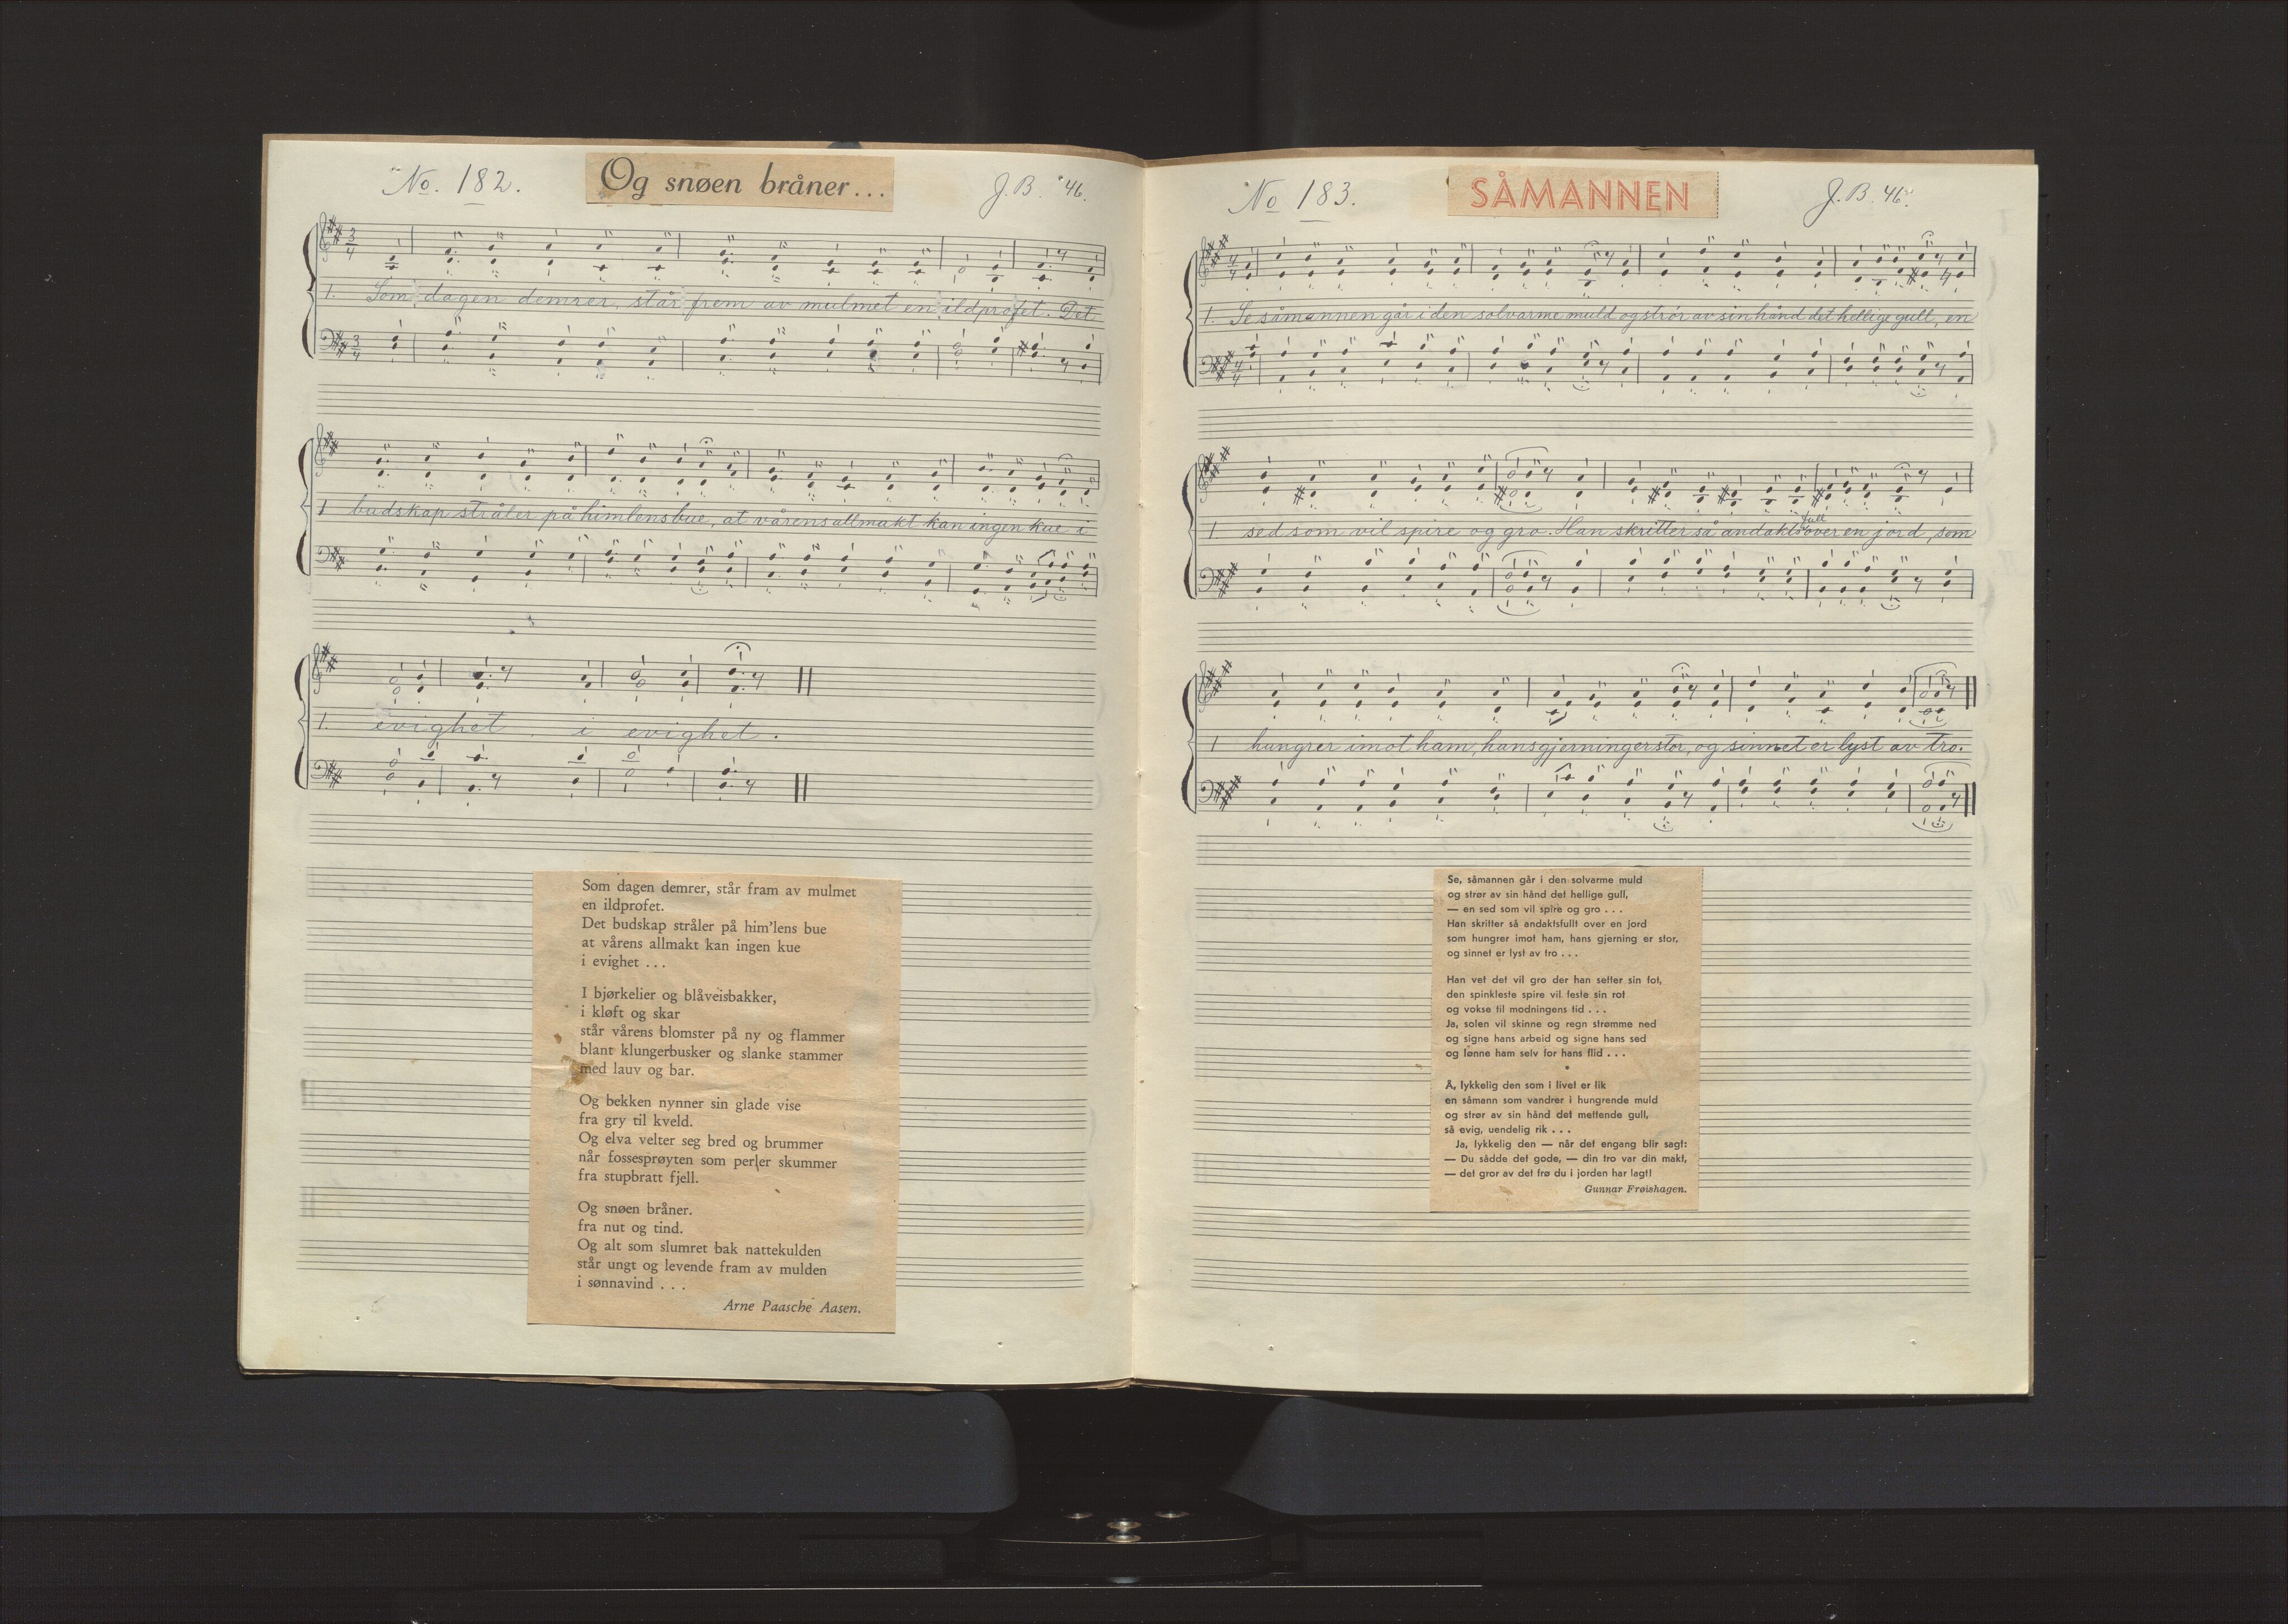 No. 182.
Og snøen bråner...
J. B. '46.
3/4
1. Som dagen demrer, står frem av mulmet en ildprofet. Det
3/4
1 budskap stråler på himlens bue, at vårens allmakt kan ingen kue i
1. evighet . i evighet.
Som dagen demrer, står fram av mulmet
en ildprofet.
Det budskap stråler på him'lens bue
at vårens allmakt kan ingen kue
i evighet ...
I bjørkelier og blåveisbakker,
i kløft og skar
står vårens blomster på ny og flammer
blant klungerbusker og slanke stammer
med lauv og bar.
Og bekken nynner sin glade vise
fra gry til kveld.
Og elva velter seg bred og brummer
når fossesprøyten som perler skummer
fra stupbratt fjell.
Og snøen bråner.
fra nut og tind.
Og alt som slumret bak nattekulden
står ungt og levende fram av mulden
i sønnavind . . .
Arne Paasche Aasen.
No 183.
SÅMANNEN
J. B. 46.
4/4
1. Se såmannen går i den solvarme muld og strør av sin hånd det hellige gull, en
4/4
1 sed som vil spire og gro. Han skritter så andaktsfull over en jord, som
1 hungrer imot ham, hans gjerning er stor, og sinnet er lyst av tro.
Se, såmannen går i den solvarme muld
og strør av sin hånd det hellige gull,
— en sed som vil spire og gro . . .
Han skritter så andaktsfullt over en jord
som hungrer imot ham, hans gjerning er stor,
og sinnet er lyst av tro . . .
Han vet det vil gro der han setter sin fot,
den spinkleste spire vil feste sin rot
og vokse til modningens tid . . .
Ja, solen vil skinne og regn strømme ned
og signe hans arbeid og signe hans sed
og lønne ham selv for hans flid . . .
Å, lykkelig den som i livet er lik
en såmann som vandrer i hungrende muld
og strør av sin hånd det mettende gull,
så evig, uendelig rik . . .
Ja, lykkelig den — når det engang blir sagt:
— Du sådde det gode, — din tro var din makt,
— det gror av det frø du i jorden har lagt!
Gunnar Frøishagen.